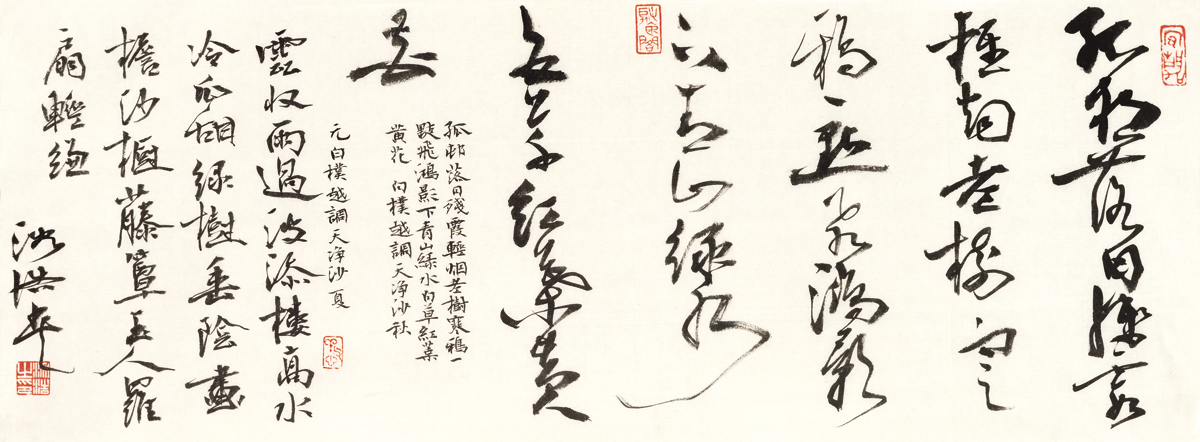 孤邨落日殘霞
輕烟老樹寒
鴉一點飛鴻影
下青山綠水
白草紅葉黃
花
孤邨落日殘霞輕烟老樹寒鴉一
點飛鴻影下青山綠水白草紅葉
黃花 白樸越調天淨沙秋
元白樸越調天淨沙夏
雲收雨過波添樓高水
冷瓜甜綠樹垂陰畫
檐沙櫥藤簟玉人羅
扇輕縑